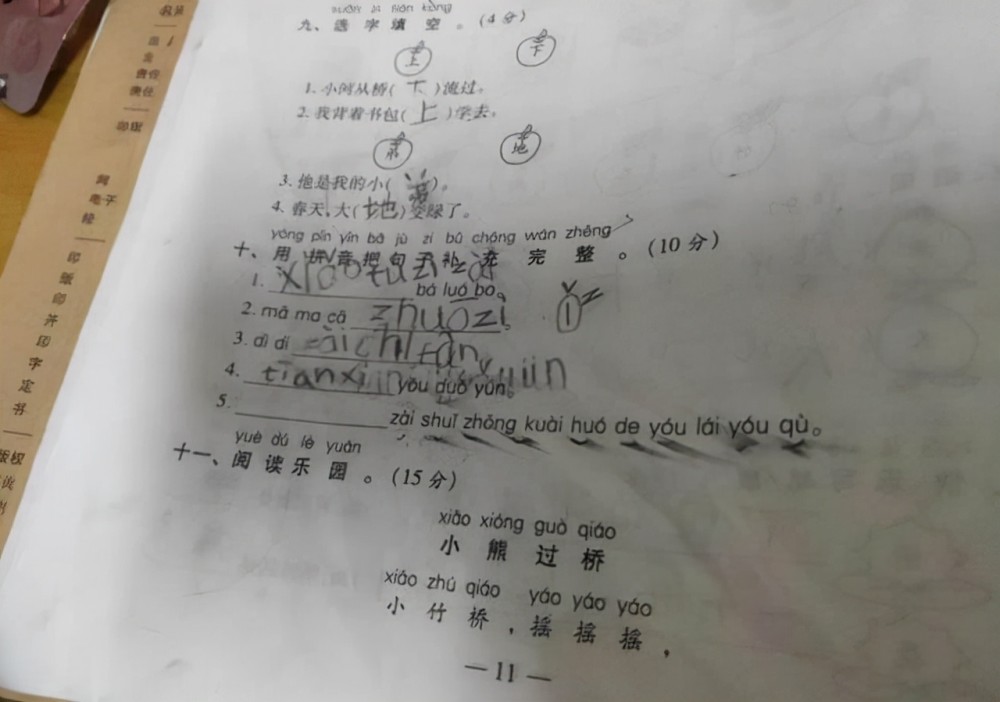 九、选字填空。(4分)
上 下
1. 小河从桥(下)流过。
2. 我背着书包(上)学去。
弟 地
3. 他是我的小()。
4. 春天,大(地)变绿了。
yòng pīn yīn bǎ jù zi bǔ chōng wán zhěng
十、用拼音把句子补充完整。(10分)
1. xiǎo tù zi zài bá luó bo。
2. mā ma cā zhuō zi。
3. dì di zài chī fàn
4. tiān xi yǒu duǒ yún。
5. zài shuǐ zhōng kuài huó de yóu lái yóu qù。
yuè dú lè yuán
十一、阅读乐园。(15分)
xiǎo xióng guò qiáo
小熊过桥
xiǎo zhú qiáo yáo yáo yáo
小竹桥,摇摇摇,
— 11 —